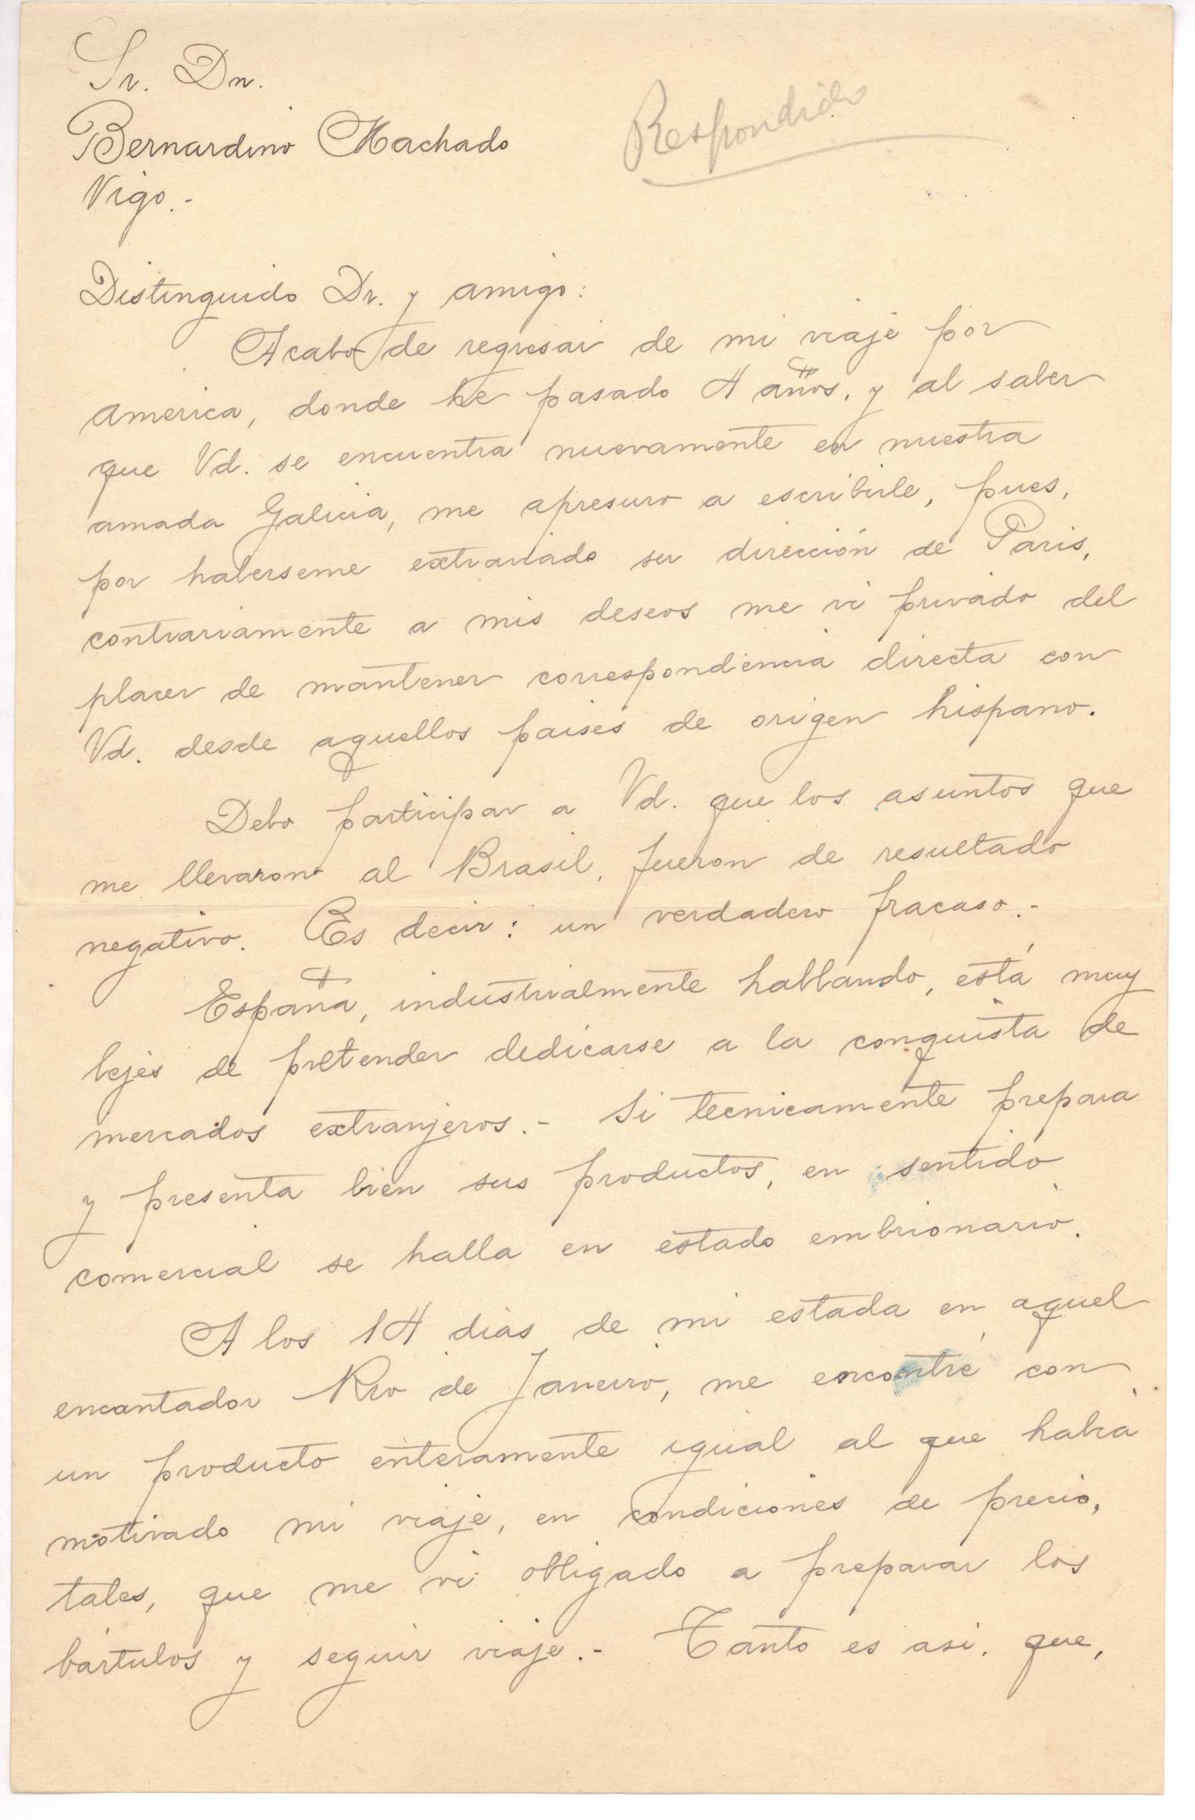 Sr. Dn.
Bernardino Machado
Respondido
Vigo.-
Distinguido Dr. y amigo:
Acabo de regresar de mi viaje por
America, donde he pasado 4 años, y al saber
que Vd. se encuentra nuevamente en nuestra
amada Galicia, me apresuro a escribirle, pues,
por haberseme extraviado su dirección de Paris,
contrariamente a mis deseos me vi privado del
placer de mantener correspondencia directa con
Vd. desde aquellos paises de origen hispano.
Debo participar a Vd. que los asuntos que
me llevaron al Brasil, fueron de resultado
negativo. Es decir: un verdadero fracaso.-
España, industrialmente hablando, está muy
lejos de pretender dedicarse a la conquista de
mercados extranjeros.- Si tecnicamente prepara
y presenta bien sus productos, en sentido
comercial se halla en estado embrionario.
A los 14 dias de mi estada en aquel
encantador Rio de Janeiro, me encontré con
un producto enteramente igual al que habia
motivado mi viaje, en condiciones de precio,
tales, que me vi obligado a preparar los
bártulos y seguir viaje.- Tanto es asi, que,